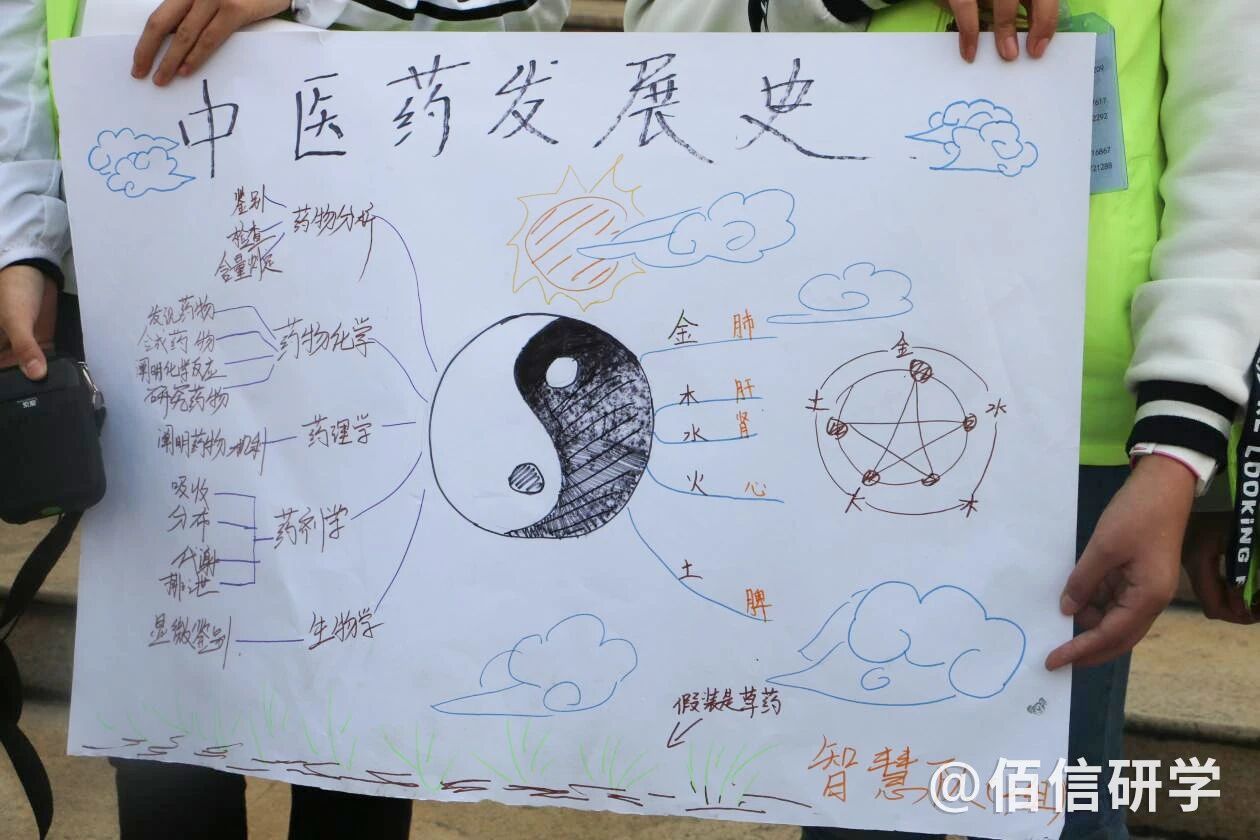 中医药发展史
鉴别
检查
含量测定
药物分析
发现药物
合成药物
阐明化学反应
研究药物
药物化学
阐明药物机制
药理学
吸收
分布
代谢
排泄
药剂学
显微鉴别
生物学
金 肺
木 肝
水 肾
火 心
土 脾
金
水
木
火
土
假装是草药
智慧
@佰信研学
LOOKING